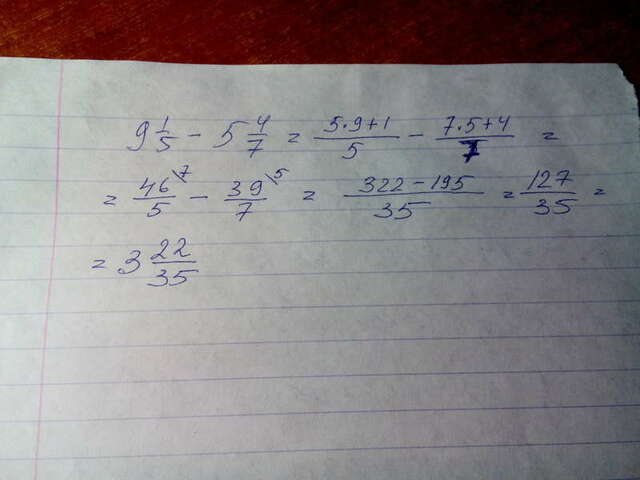 9 1/5 - 5 4/7 = (5·9+1)/5 - (7·5+4)/7 =
= 46/5 \7 - 39/7 \5 = (322-195)/35 = 127/35 =
= 3 22/35